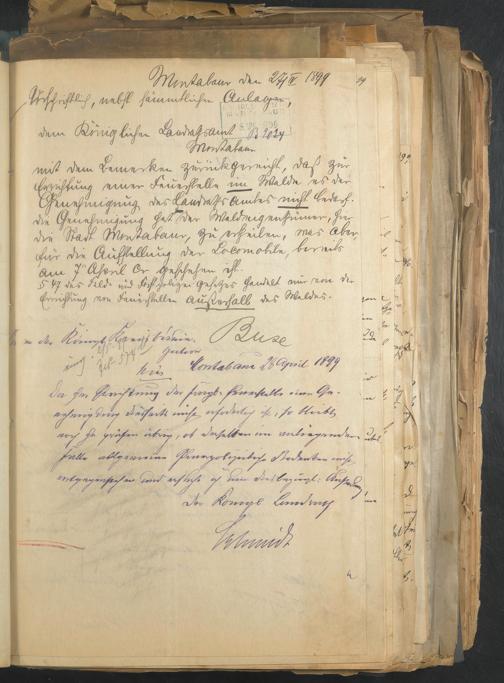 Montabaur den 27/IV 1899
Urschriftlich, nebst sämmtlichen Anlagen,
dem Königlichen Landratsamt B 2024
Montabaur
mit dem Bemerken zurückgereicht, daß zur
Errichtung einer Feuerstelle im Walde es der
Genehmigung des Landratsamtes nicht bedarf.
die Genehmigung hat der Waldeigenthümer, hier
die Stadt Montabaur, zu ertheilen, was aber
für die Aufstellung der Locomobile, bereits
am 7t April Cr geschehen ist.
§ 47 des Feld- und Forstpolizei Gesetzes handelt nur von der
Errichtung von Feuerstellen außerhalb des Waldes.
Buse
Königl. Kreisbau
hier
Montabaur 28 April 1899
Da zur Errichtung der fragl. Feuerstelle eine Ge-
nehmigung nicht erforderlich ist, so bleibt
noch zu prüfen übrig, ob derselben im vorliegenden
Falle allgemeine feuerpolizeiliche Bedenken nicht
entgegenstehen und ersuche ich um diesbezügl.
Der Königl Landrath
Schmidt